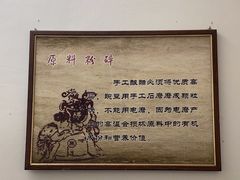 原料粉碎
手工酿醋必须将优质高
粱豆用手工石磨磨成颗粒
不能用电磨，因为电磨产
的高温会损坏原料中的有机
和营养价值。